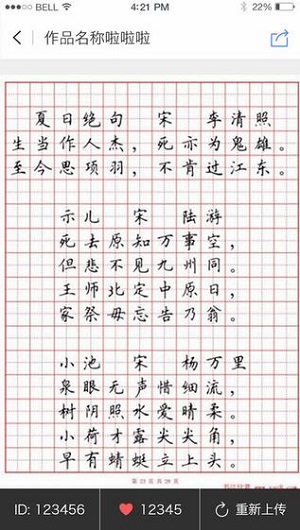 BELL 4:21 PM 22%
作品名称啦啦啦
夏日绝句 宋 李清照
生当作人杰，死亦为鬼雄。
至今思项羽，不肯过江东。
示儿 宋 陆游
死去原知万事空，
但悲不见九州同。
王师北定中原日，
家祭毋忘告乃翁。
小池 宋 杨万里
泉眼无声惜细流，
树阴照水爱晴柔。
小荷才露尖尖角，
早有蜻蜓立上头。
第 23 页 共 29 页
ID: 123456 12345 重新上传